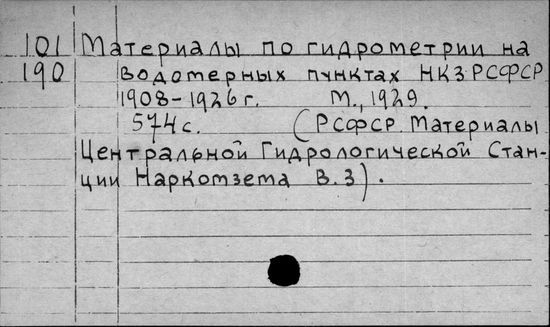 101 Материалы по гидрометрии на
190 водомерных пунктах НКЗ РСФСР
1908-1926 г. М., 1929.
574 с. (РСФСР. Материалы
Центральной Гидрологической Стан-
ции Наркомзема В. 3).